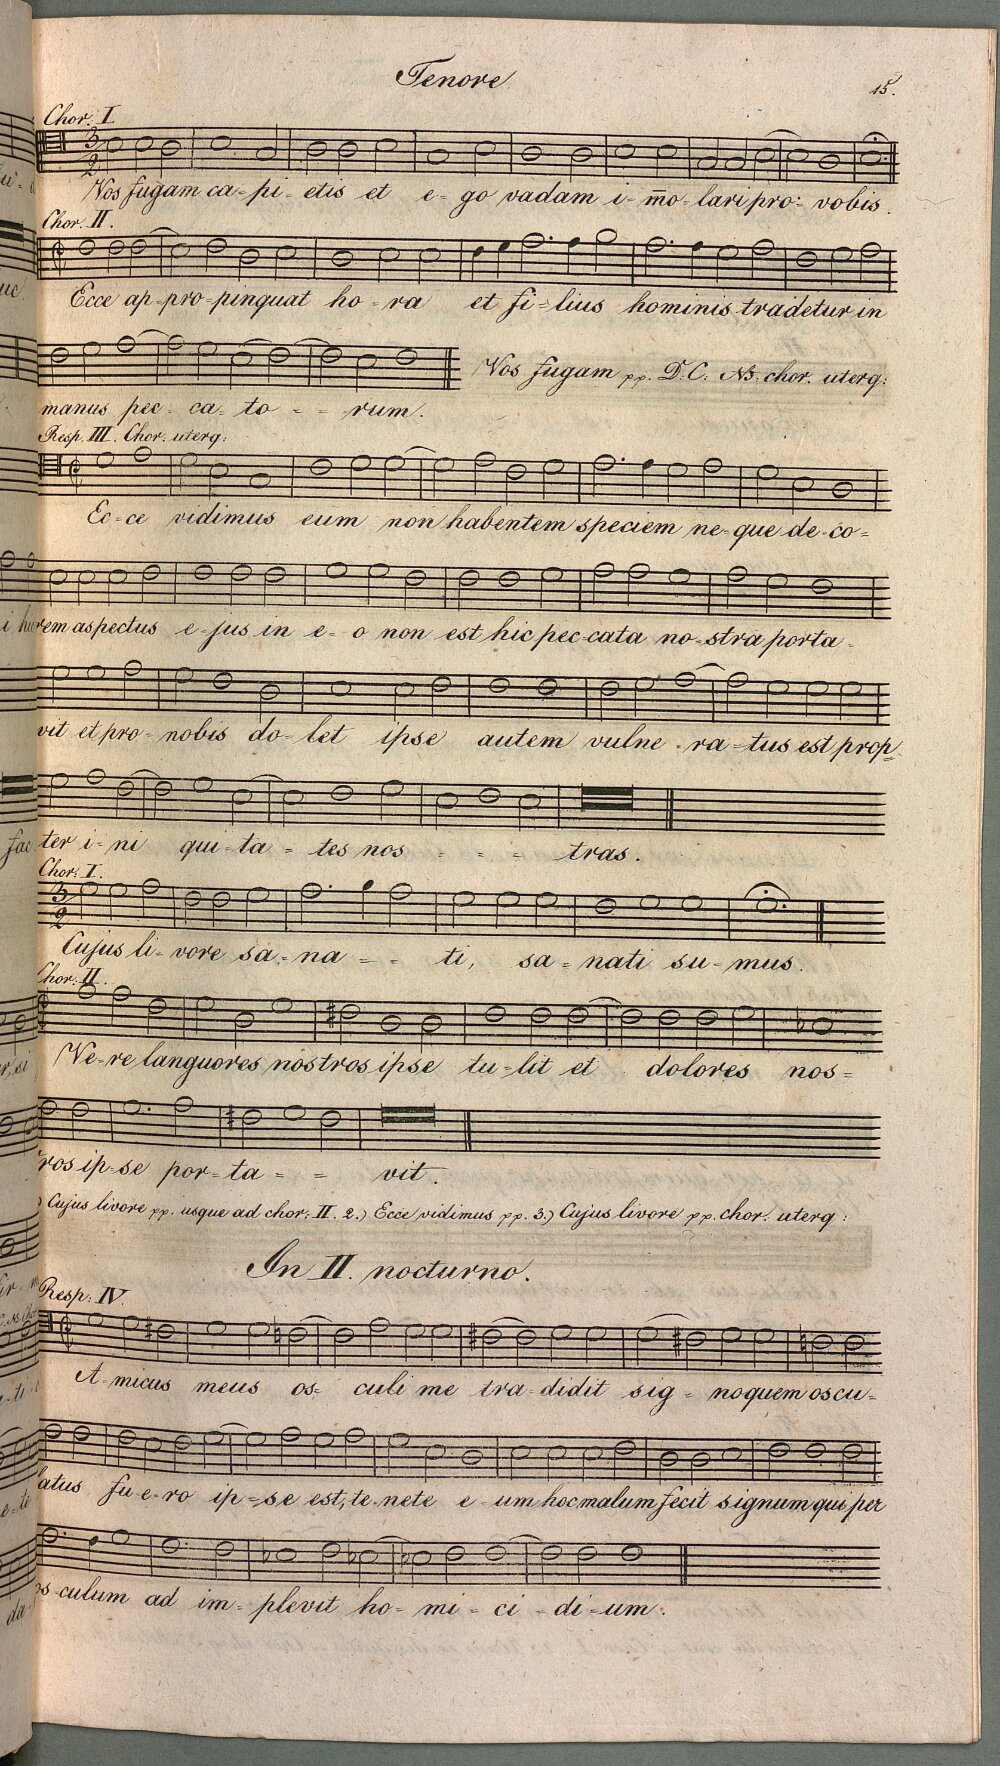 Tenore
15.
Chor. I.
3/2
Vos fugam ca-pi-etis et e-go vadam i-m̄o-lari pro-vobis.
Chor. II.
Ecce ap-pro-pinquat ho-ra et fi-lius hominis tradetur in
Vos fugam pp. D.C. NB. chor. uterq:
manus pec-ca-to - - rum.
Resp. III. Chor. uterq:
Ec-ce vidimus eum non habentem speciem ne-que de-co-
rem aspectus e-jus in e-o non est hic pec-cata no-stra porta-
vit et pro-nobis do-let ipse autem vulne-ra-tus est prop-
ter i-ni qui-ta-tes nos - - - tras.
Chor. I.
3/2
Cujus li-vore sa-na - - ti, sa-nati su-mus.
Chor. II.
Ve-re languores nostros ipse tu-lit et dolores nos-
ros ip-se por-ta - - vit.
) Cujus livore pp. usque ad chor: II. 2.) Ecce vidimus pp. 3.) Cujus livore pp. chor. uterq:
In II. nocturno.
Resp: IV.
A-micus meus os-culi me tra-didit sig-no quem oscu-
latus fu-e-ro ip-se est, te-nete e-um hoc malum fecit signum qui per
os-culum ad im-plevit ho-mi-ci-di-um.